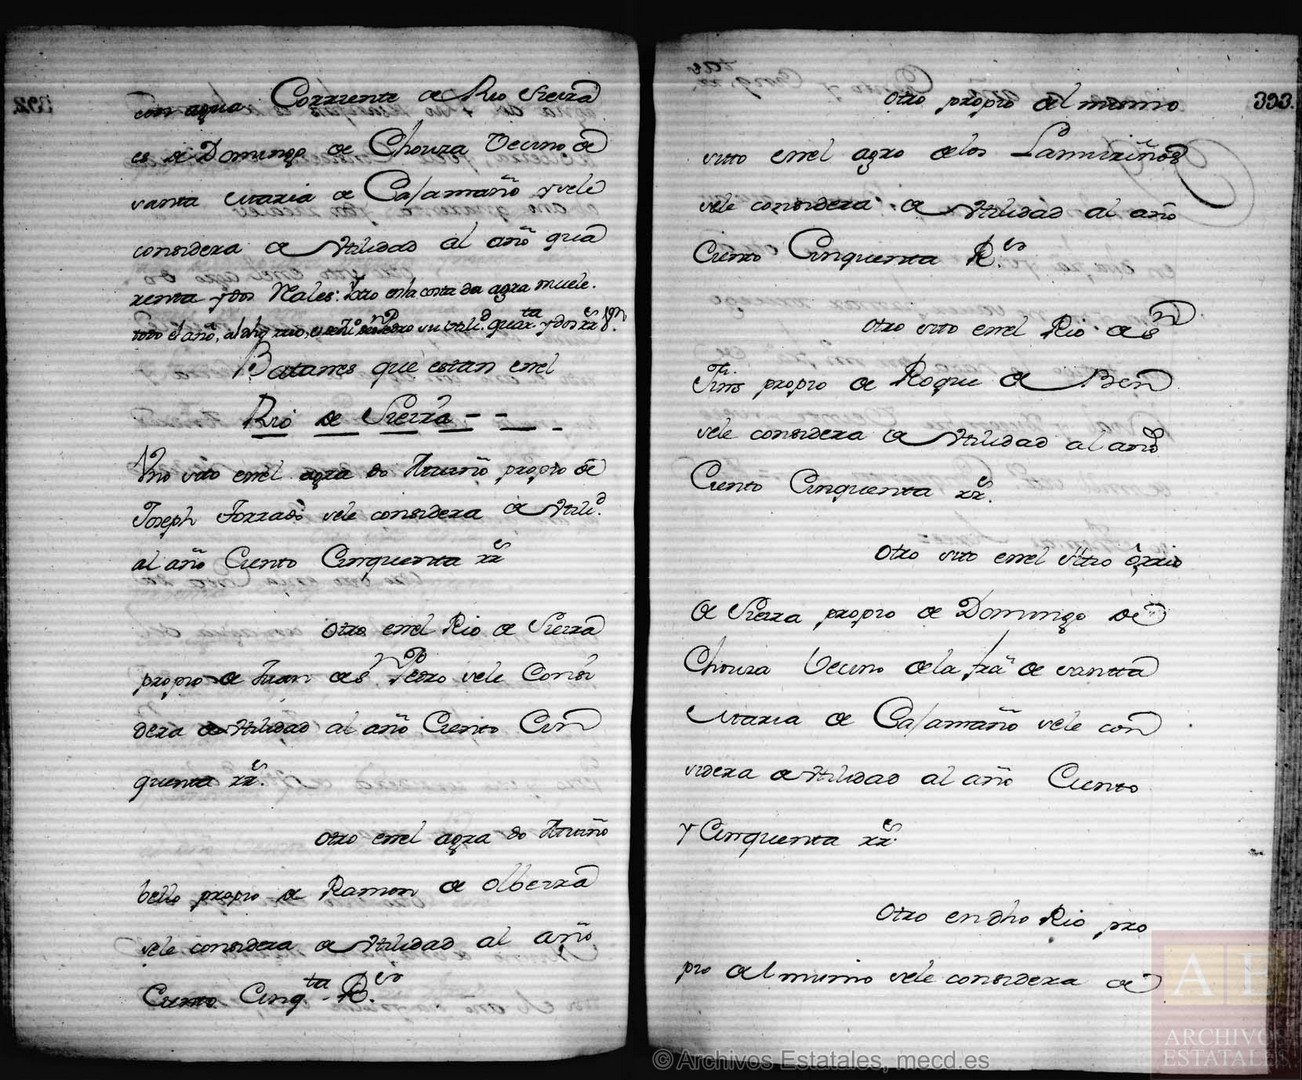 con agua Corriente de Rio Sierra
es de Domingo de Chouza Vecino de
santa Maria de Casamaño y sele
considera de Utilidad al año qua
renta y dos Rales: Yotro en la costa da agra muele
todo el año, al dho rio, es de su Utili.d quar.ta y dos rr.s
Batanes que estan en el
Rio de Sierra - -
Uno sito en el agra do Muiño propio de
Joseph Forzado sele considera de Utili.d
al año Ciento Cinquenta rr.s
Otro en el Rio de Sierra
propio de Juan de S.n Pedro sele Consi
dera de Utilidad al año Ciento Cin
quenta rr.s
Otro en el agra do Muiño
bello propio de Ramon de Olbeira
sele considera de Utilidad al año
Ciento Cinq.ta R.s
393.
Otro propio del mismo
sito en el agro delos Lamiriños
sele considera de Utilidad al año
Ciento Cinquenta R.s
Otro sito en el Rio de S.n
Tirso propio de Roque de Ben
sele considera de Utilidad al año
Ciento Cinquenta rr.s
Otro sito en el sitio rio
de Sierra propio de Domingo de
Chouza Vecino de la fra de santta
Maria de Casamaño sele con
sidera de Utilidad al año Ciento
y Cinquenta rr.s
Otro en dho Rio pro
pio del mismo sele considera de
© Archivos Estatales, mecd.es
AE
ARCHIVOS
ESTATALES